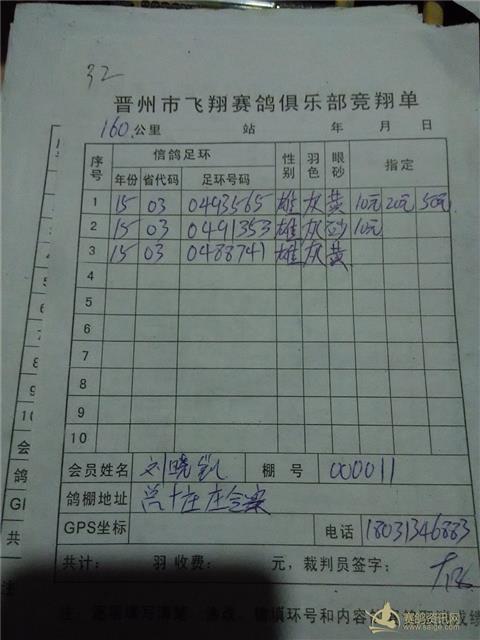 32
晋州市飞翔赛鸽俱乐部竞翔单
160 公里 站 年 月 日
序号 信鸽足环 性别 羽色 眼砂 指定
年份 省代码 足环号码
1 15 03 0493565 雄 灰 黄 10元 20元 50元
2 15 03 0491353 雄 灰 砂 10元
3 15 03 0488741 雄 灰 黄
4
5
6
7
8
9
10
会员姓名 刘晓凯 棚号 000011
鸽棚地址 总十庄
GPS坐标 电话 18031346883
共计: 羽 收费: 元, 裁判员签字:
赛鸽资讯网
www.saige.com